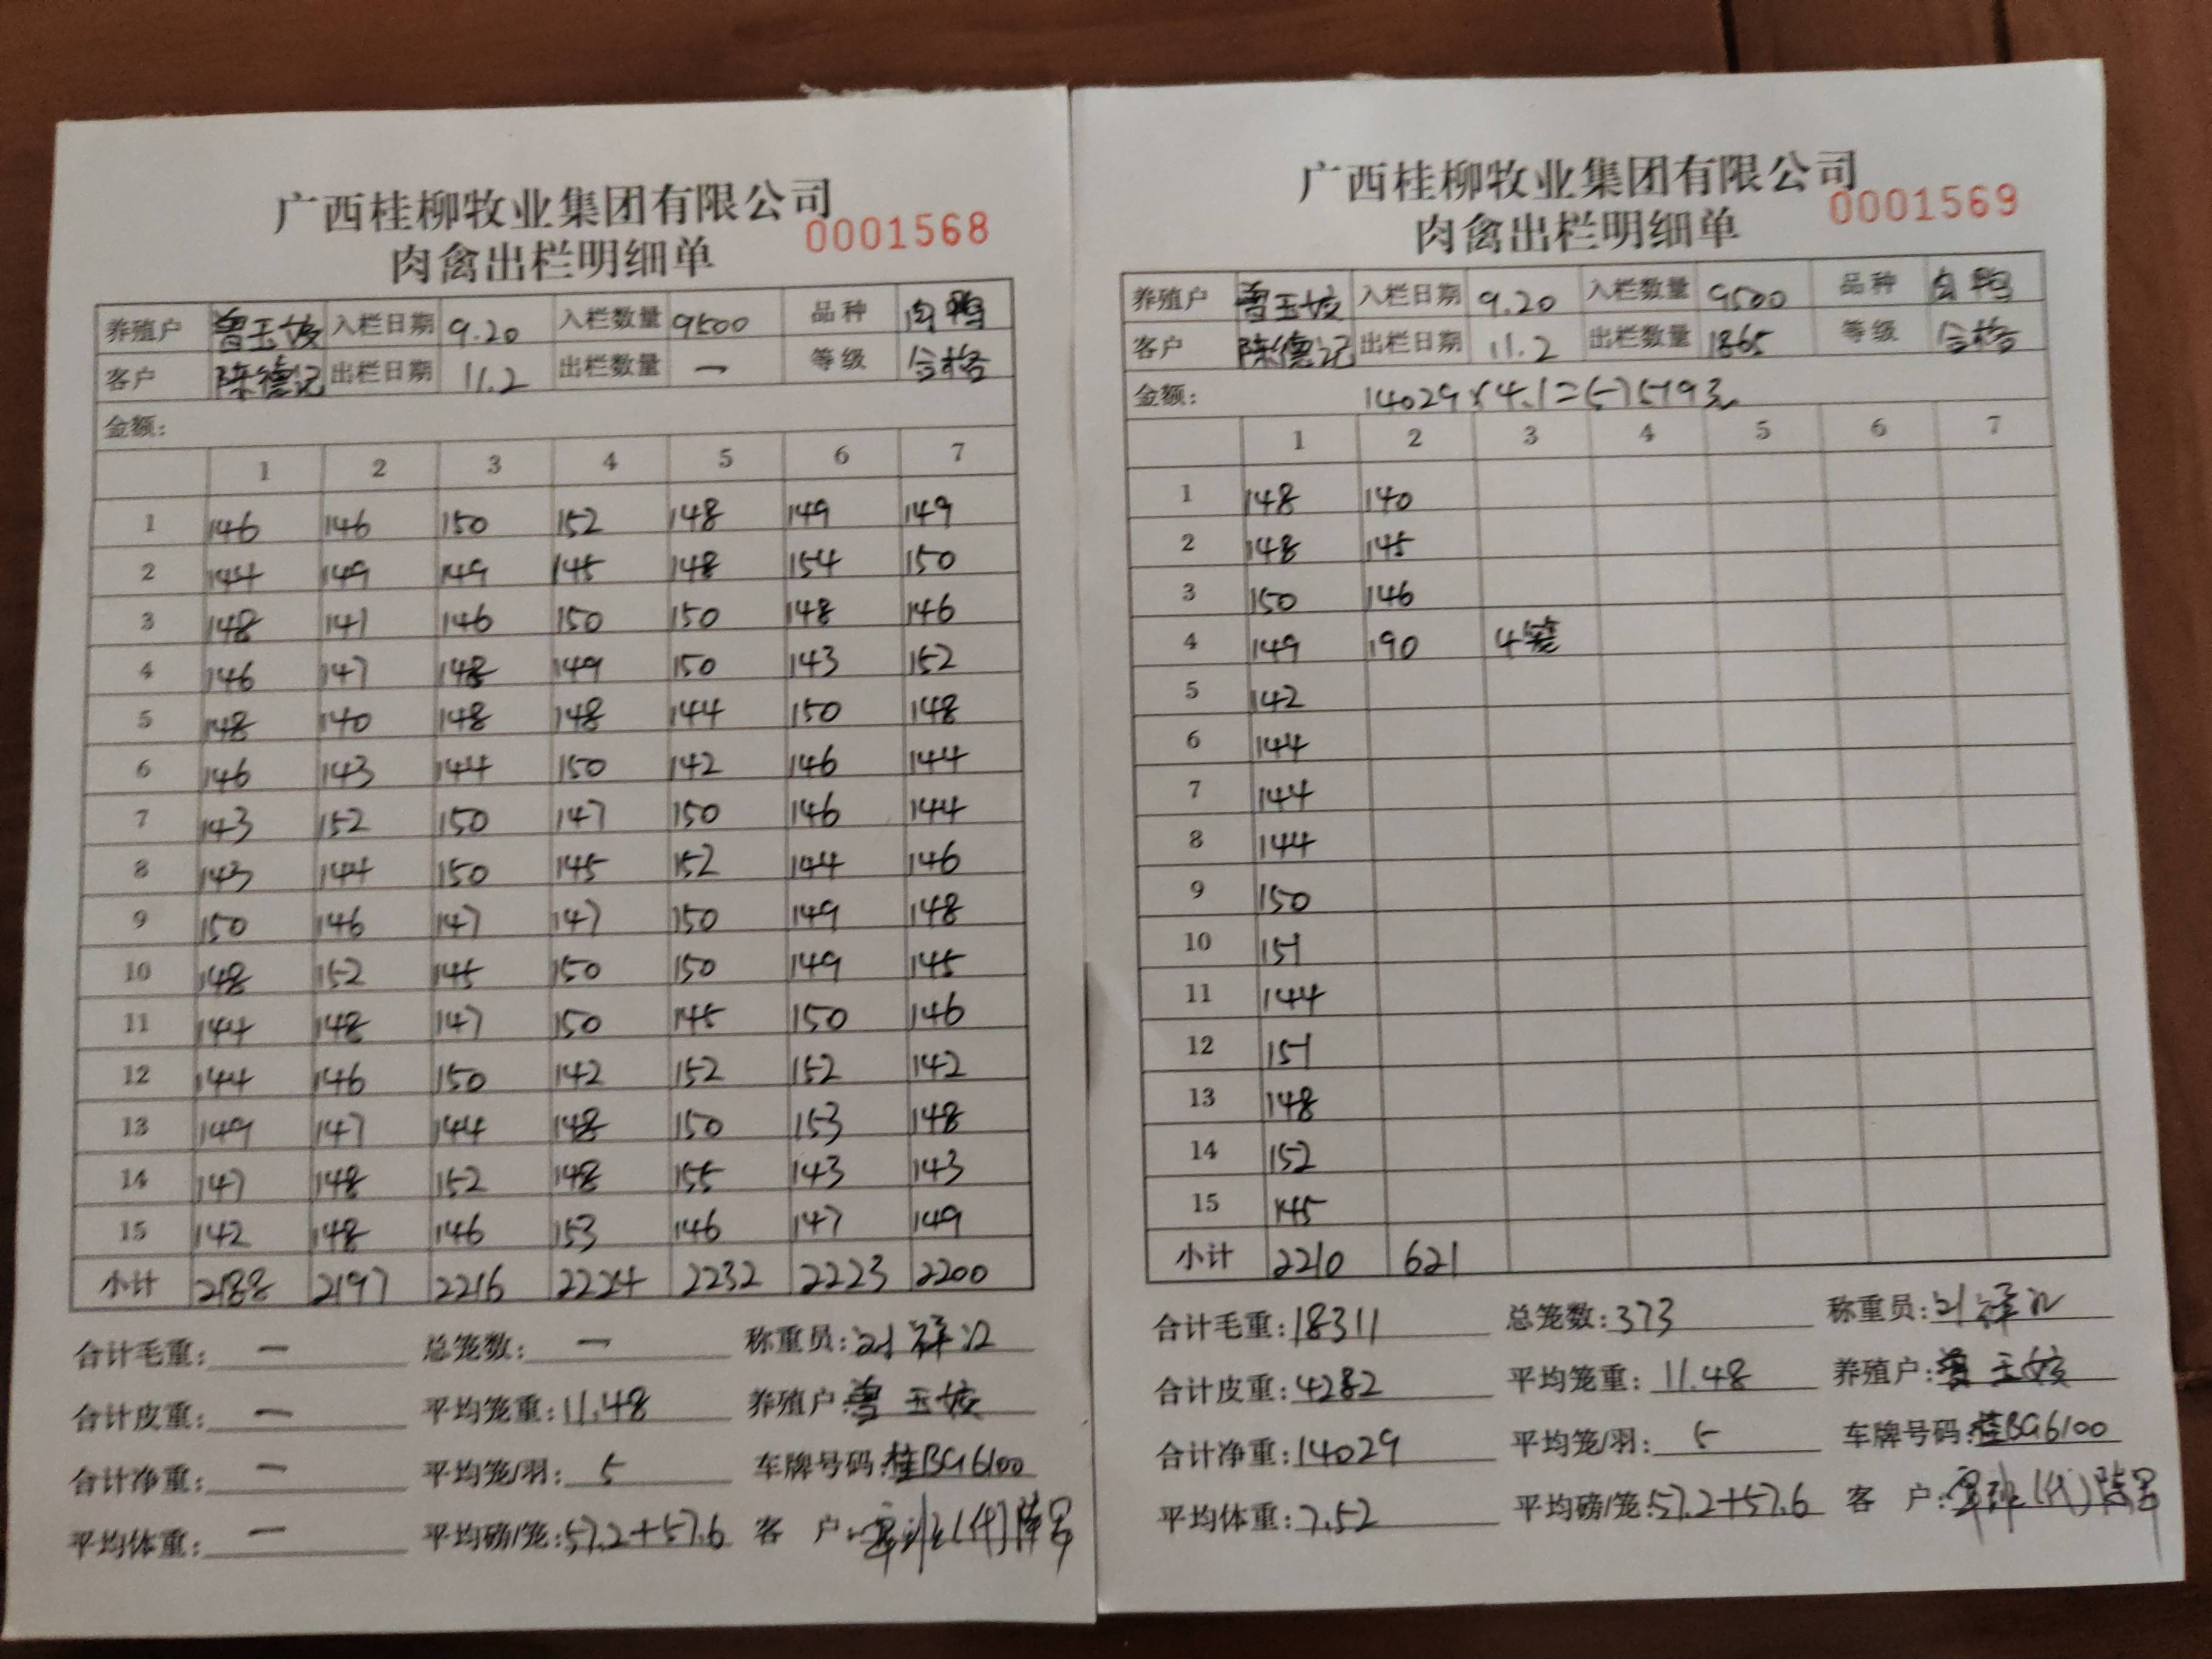 广西桂柳牧业集团有限公司
肉禽出栏明细单 0001568
养殖户 曾玉姣 入栏日期 9.20 入栏数量 9500 品种 白鸭
客户 陈德记 出栏日期 11.2 出栏数量 一 等级 合格
金额:
1 2 3 4 5 6 7
1 146 146 150 152 148 149 149
2 144 149 149 145 148 154 150
3 148 141 146 150 150 148 146
4 146 147 148 149 150 143 152
5 148 140 148 148 144 150 148
6 146 143 144 150 142 146 144
7 143 152 150 147 150 146 144
8 143 144 150 145 152 144 146
9 150 146 147 147 150 149 148
10 148 152 145 150 150 149 145
11 144 148 147 150 145 150 146
12 144 146 150 142 152 152 142
13 149 147 144 148 150 153 148
14 147 148 152 148 155 143 143
15 142 148 146 153 146 147 149
小计 2188 2197 2216 2224 2232 2223 2200
合计毛重: 一 总笼数: 一 称重员: 刘祥
合计皮重: 一 平均笼重: 11.48 养殖户 曾玉姣
合计净重: 一 平均笼/羽: 5 车牌号码: 桂BG6100
平均体重: 一 平均磅/笼: 57.2+57.6 客 户: (代)
广西桂柳牧业集团有限公司
肉禽出栏明细单 0001569
养殖户 曾玉姣 入栏日期 9.20 入栏数量 9500 品种 白鸭
客户 陈德记 出栏日期 11.2 出栏数量 1865 等级 合格
金额: 14029×4.1=57519
1 2 3 4 5 6 7
1 148 140
2 148 145
3 150 146
4 149 190 4笼
5 142
6 144
7 144
8 144
9 150
10 151
11 144
12 151
13 148
14 152
15 145
小计 2210 621
合计毛重: 18311 总笼数: 373 称重员: 刘祥
合计皮重: 4282 平均笼重: 11.48 养殖户: 曾玉姣
合计净重: 14029 平均笼/羽: 5 车牌号码: 桂BG6100
平均体重: 7.52 平均磅/笼: 57.2+57.6 客 户: (代)